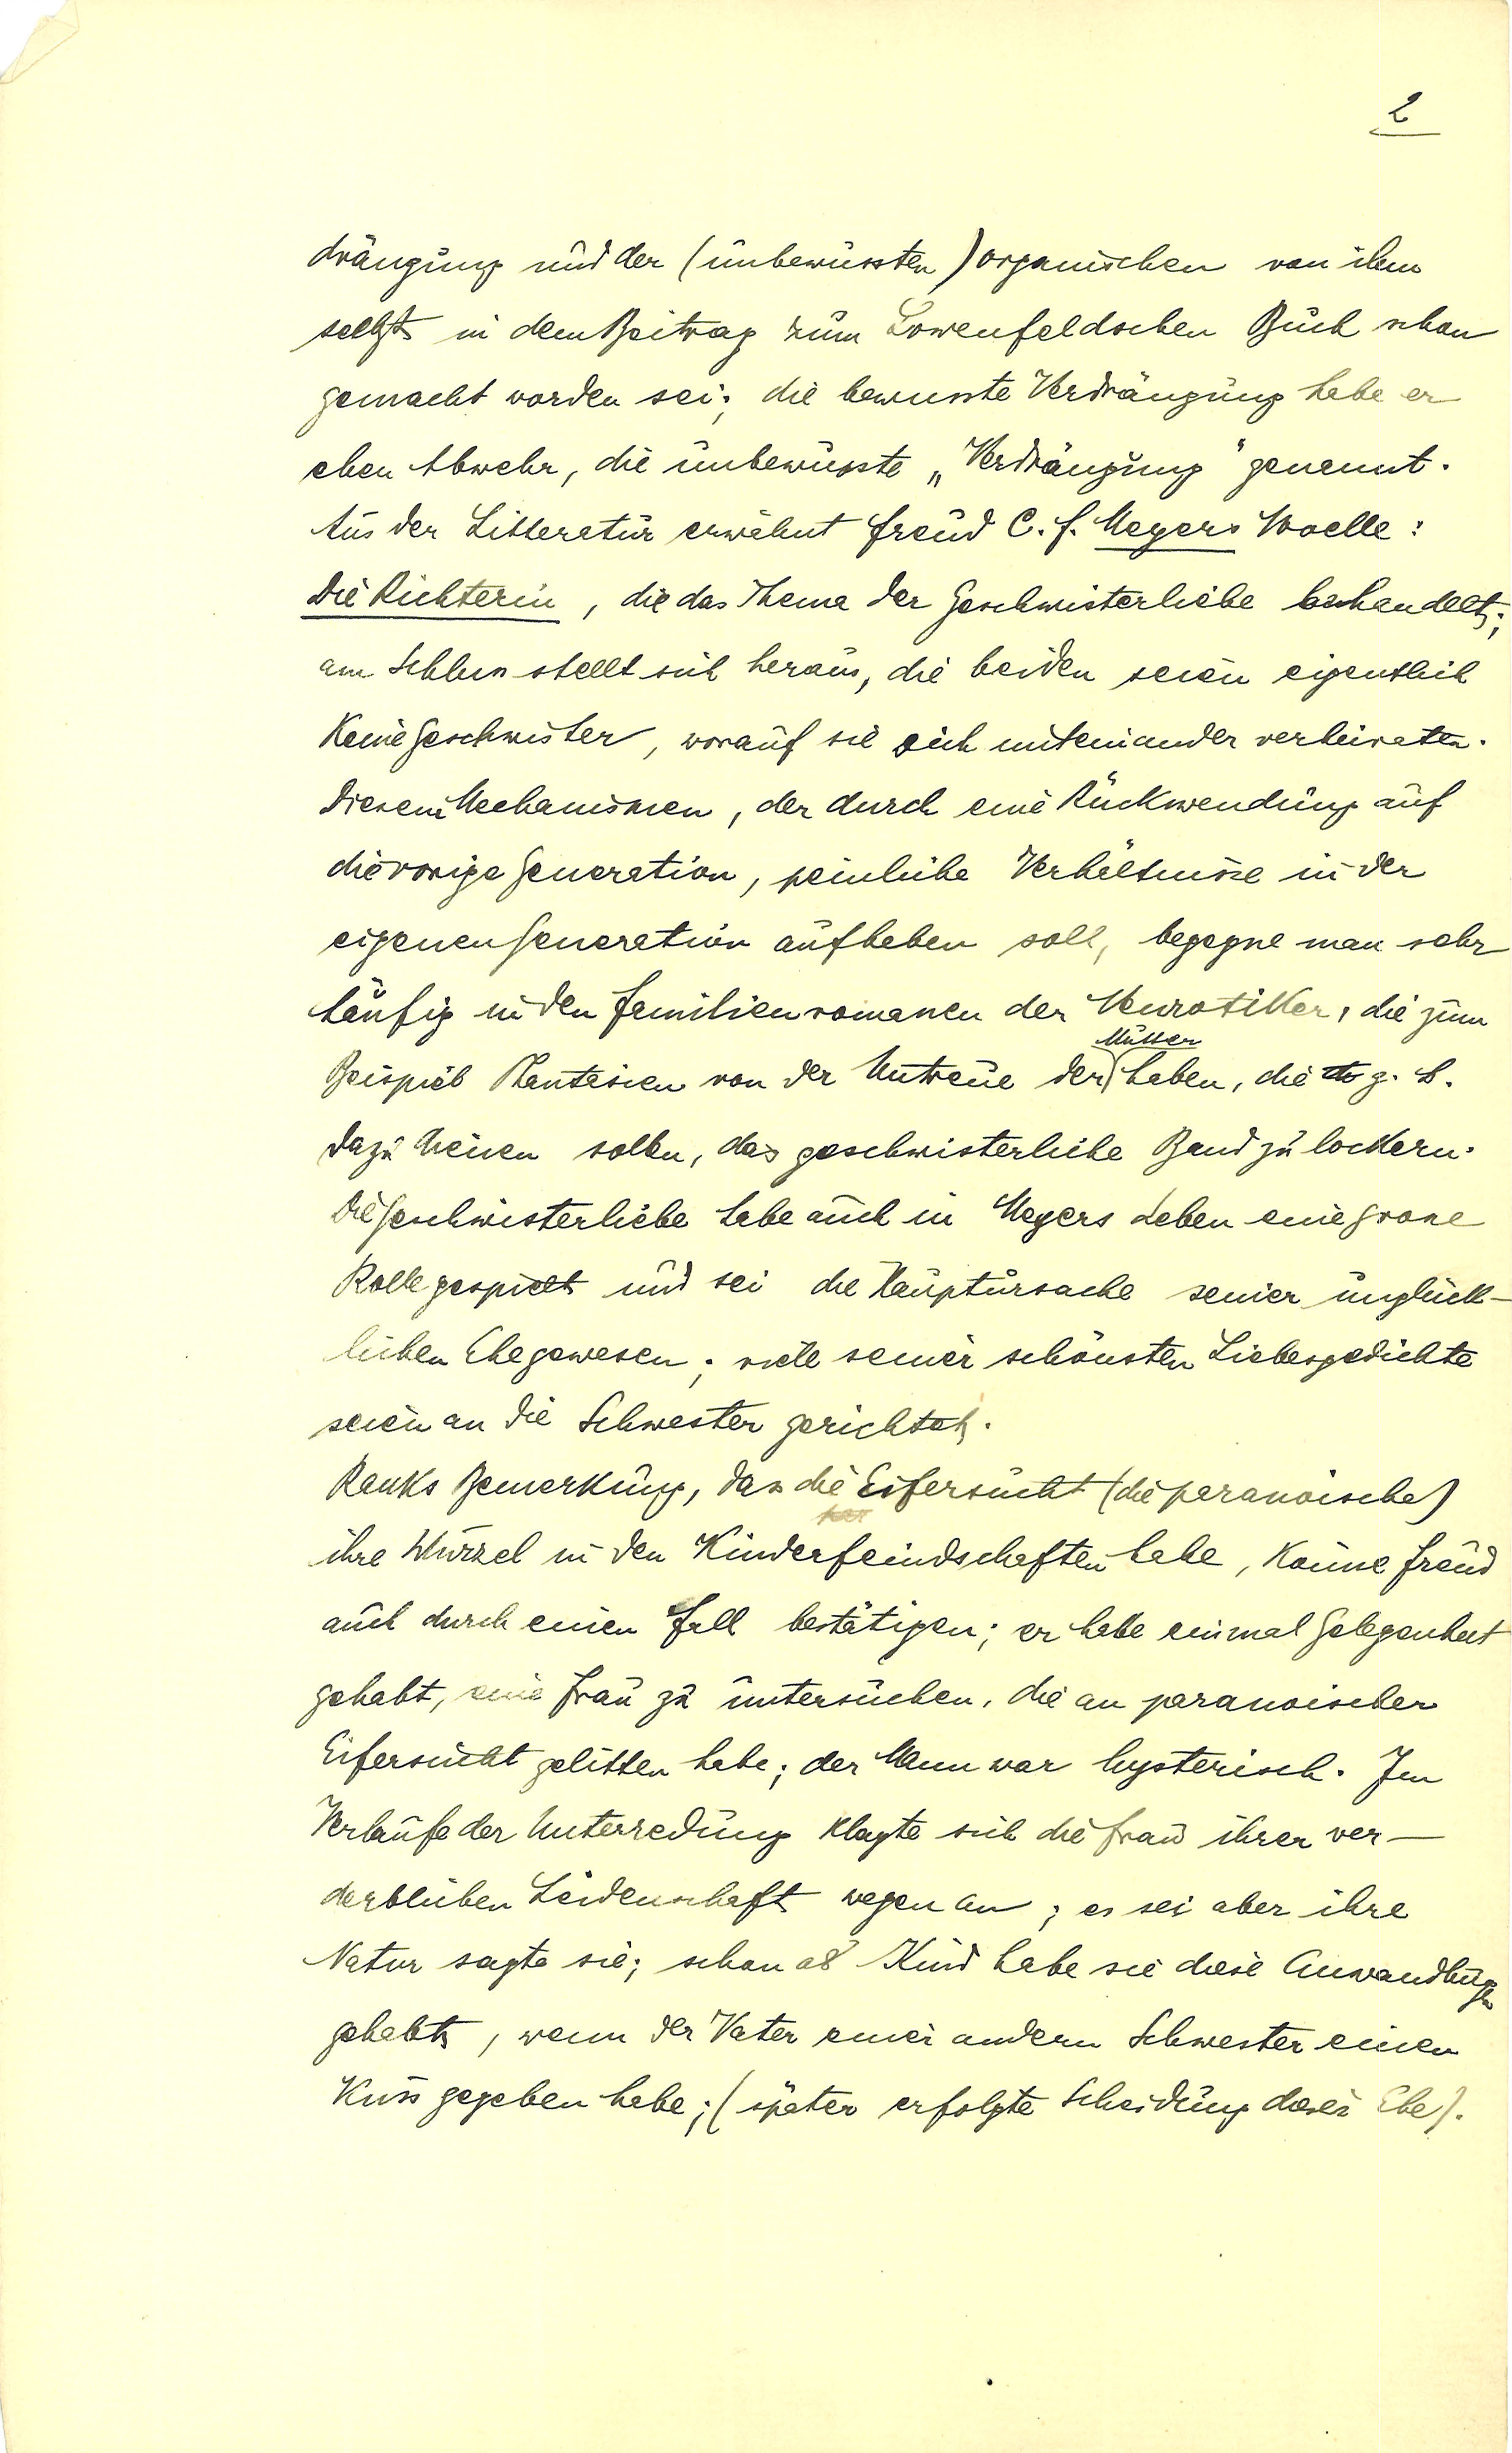 2
drängung und der (unbewussten) organischen von ihm
selbst in dem Beitrag zum Löwenfeldschen Buch schon
gemacht worden sei; die bewusste Verdrängung habe er
eben Abwehr, die unbewusste „Verdrängung" genannt.
Aus der Litteratur erwähnt Freud C. F. Meyers Novelle:
Die Richterin, die das Thema der Geschwisterliebe behandelt;
am Schluss stellt sich heraus, die beiden seien eigentlich
keine Geschwister, worauf sie sich miteinander verheiraten.
Diesem Mechanismen, der durch eine Rückwendung auf
die vorige Generation, peinliche Verhältnisse in der
eigenen Generation aufheben soll, begegne man sehr
häufig in den Familienromanen der Neurotiker, die zum
Beispiel Phantasien von der Untreue der Mutter haben, die z. B.
dazu dienen sollen, das geschwisterliche Band zu lockern.
Die Geschwisterliebe habe auch in Meyers Leben eine grosse
Rolle gespielt und sei die Hauptursache seiner unglück-
lichen Ehe gewesen; viele seiner schönsten Liebesgedichte
seien an die Schwester gerichtet.
Ranks Bemerkung, dass die Eifersucht (die paranoische)
ihre Wurzel in den Kinderfeindschaften habe, könne Freud
auch durch einen Fall bestätigen; er habe einmal Gelegenheit
gehabt, eine Frau zu untersuchen, die an paranoischer
Eifersucht gelitten habe; der Mann war hysterisch. Im
Verlaufe der Unterredung klagte sich die Frau ihrer ver-
derblichen Leidenschaft wegen an; es sei aber ihre
Natur sagte sie; schon als Kind habe sie diese Anwandlungen
gehabt, wenn der Vater einer andern Schwester einen
Kuss gegeben habe; (später erfolgte Scheidung dieser Ehe).